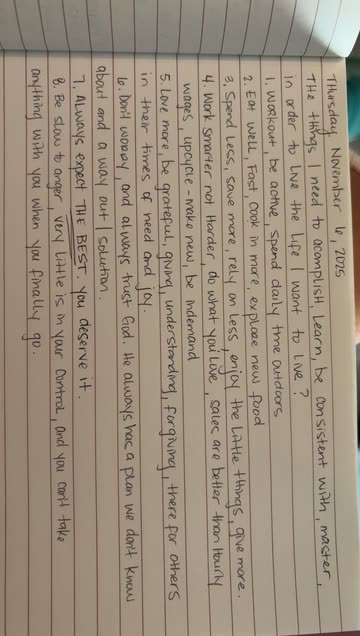 Thursday November 6, 2025
The things I need to acomplish, learn, be consistent with, master,
in order to live the life I want to live?
1. Workout, be active spend daily time outdoors
2. Eat well, Fast, Cook in more, explore new food
3. Spend less, save more, rely on less, enjoy the little things, give more.
4. Work smarter not Harder, do what you love, sales are better than Hourly
wages, upcycle - make new, be indemand
5. Love more, be grateful, giving, understanding, forgiving, there for others
in their times of need and joy.
6. Don't worry and always trust God. He always has a plan we don't know
about and a way out / solution.
7. Always expect THE BEST, you deserve it.
8. Be slow to anger, very little is in your control, and you can't take
anything with you when you finally go.